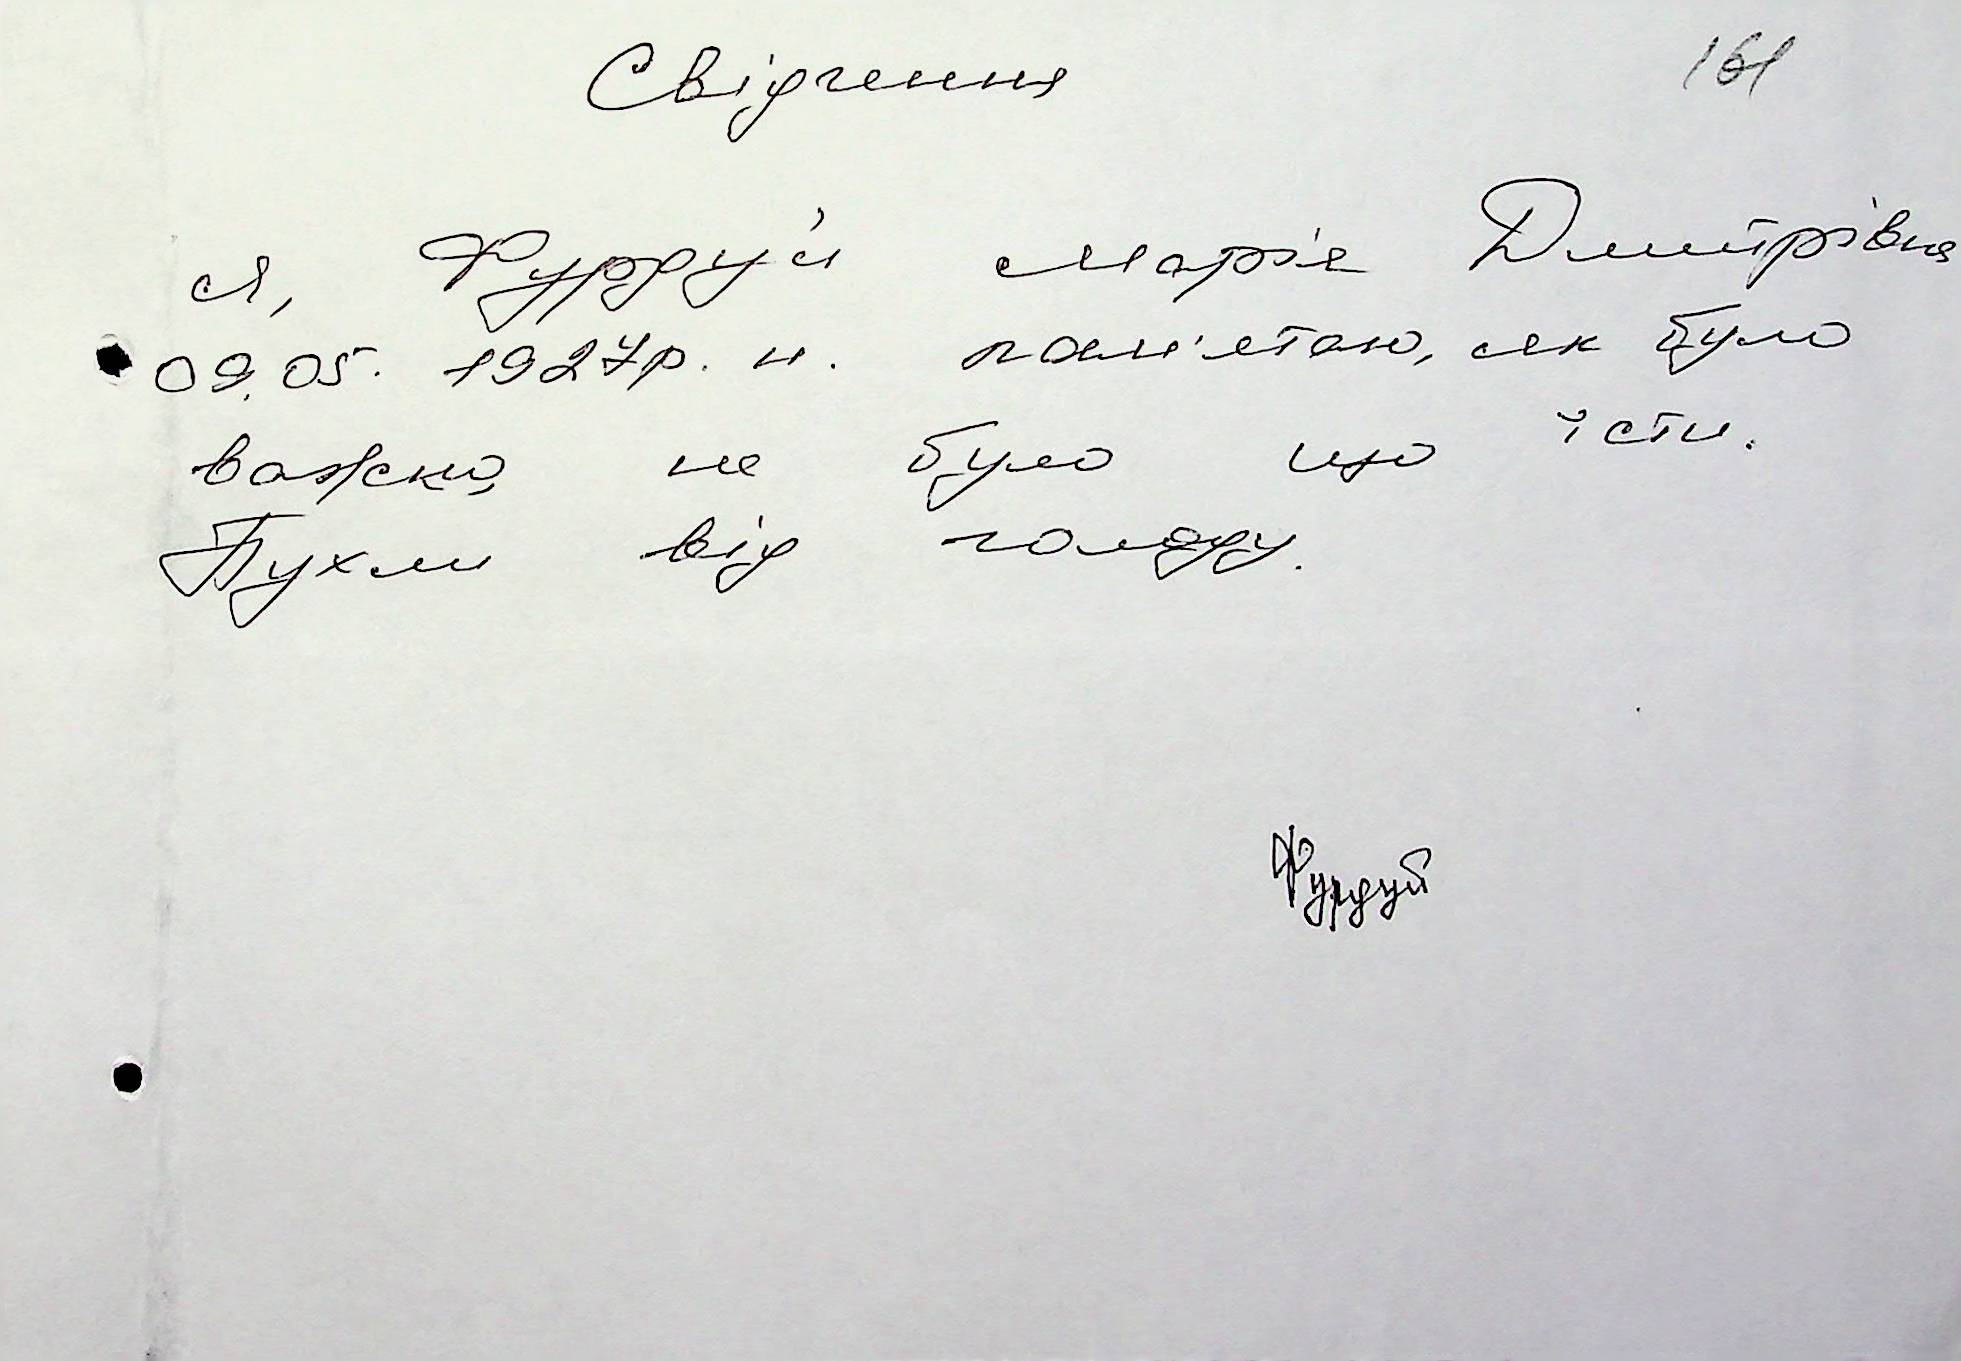 Свідчення
161
Я, Фурдуй Марія Дмитрівна
09.05. 1927р. н. пам'ятаю, як було
важко, не було що їсти.
Пухли від голоду.
Фурдуй